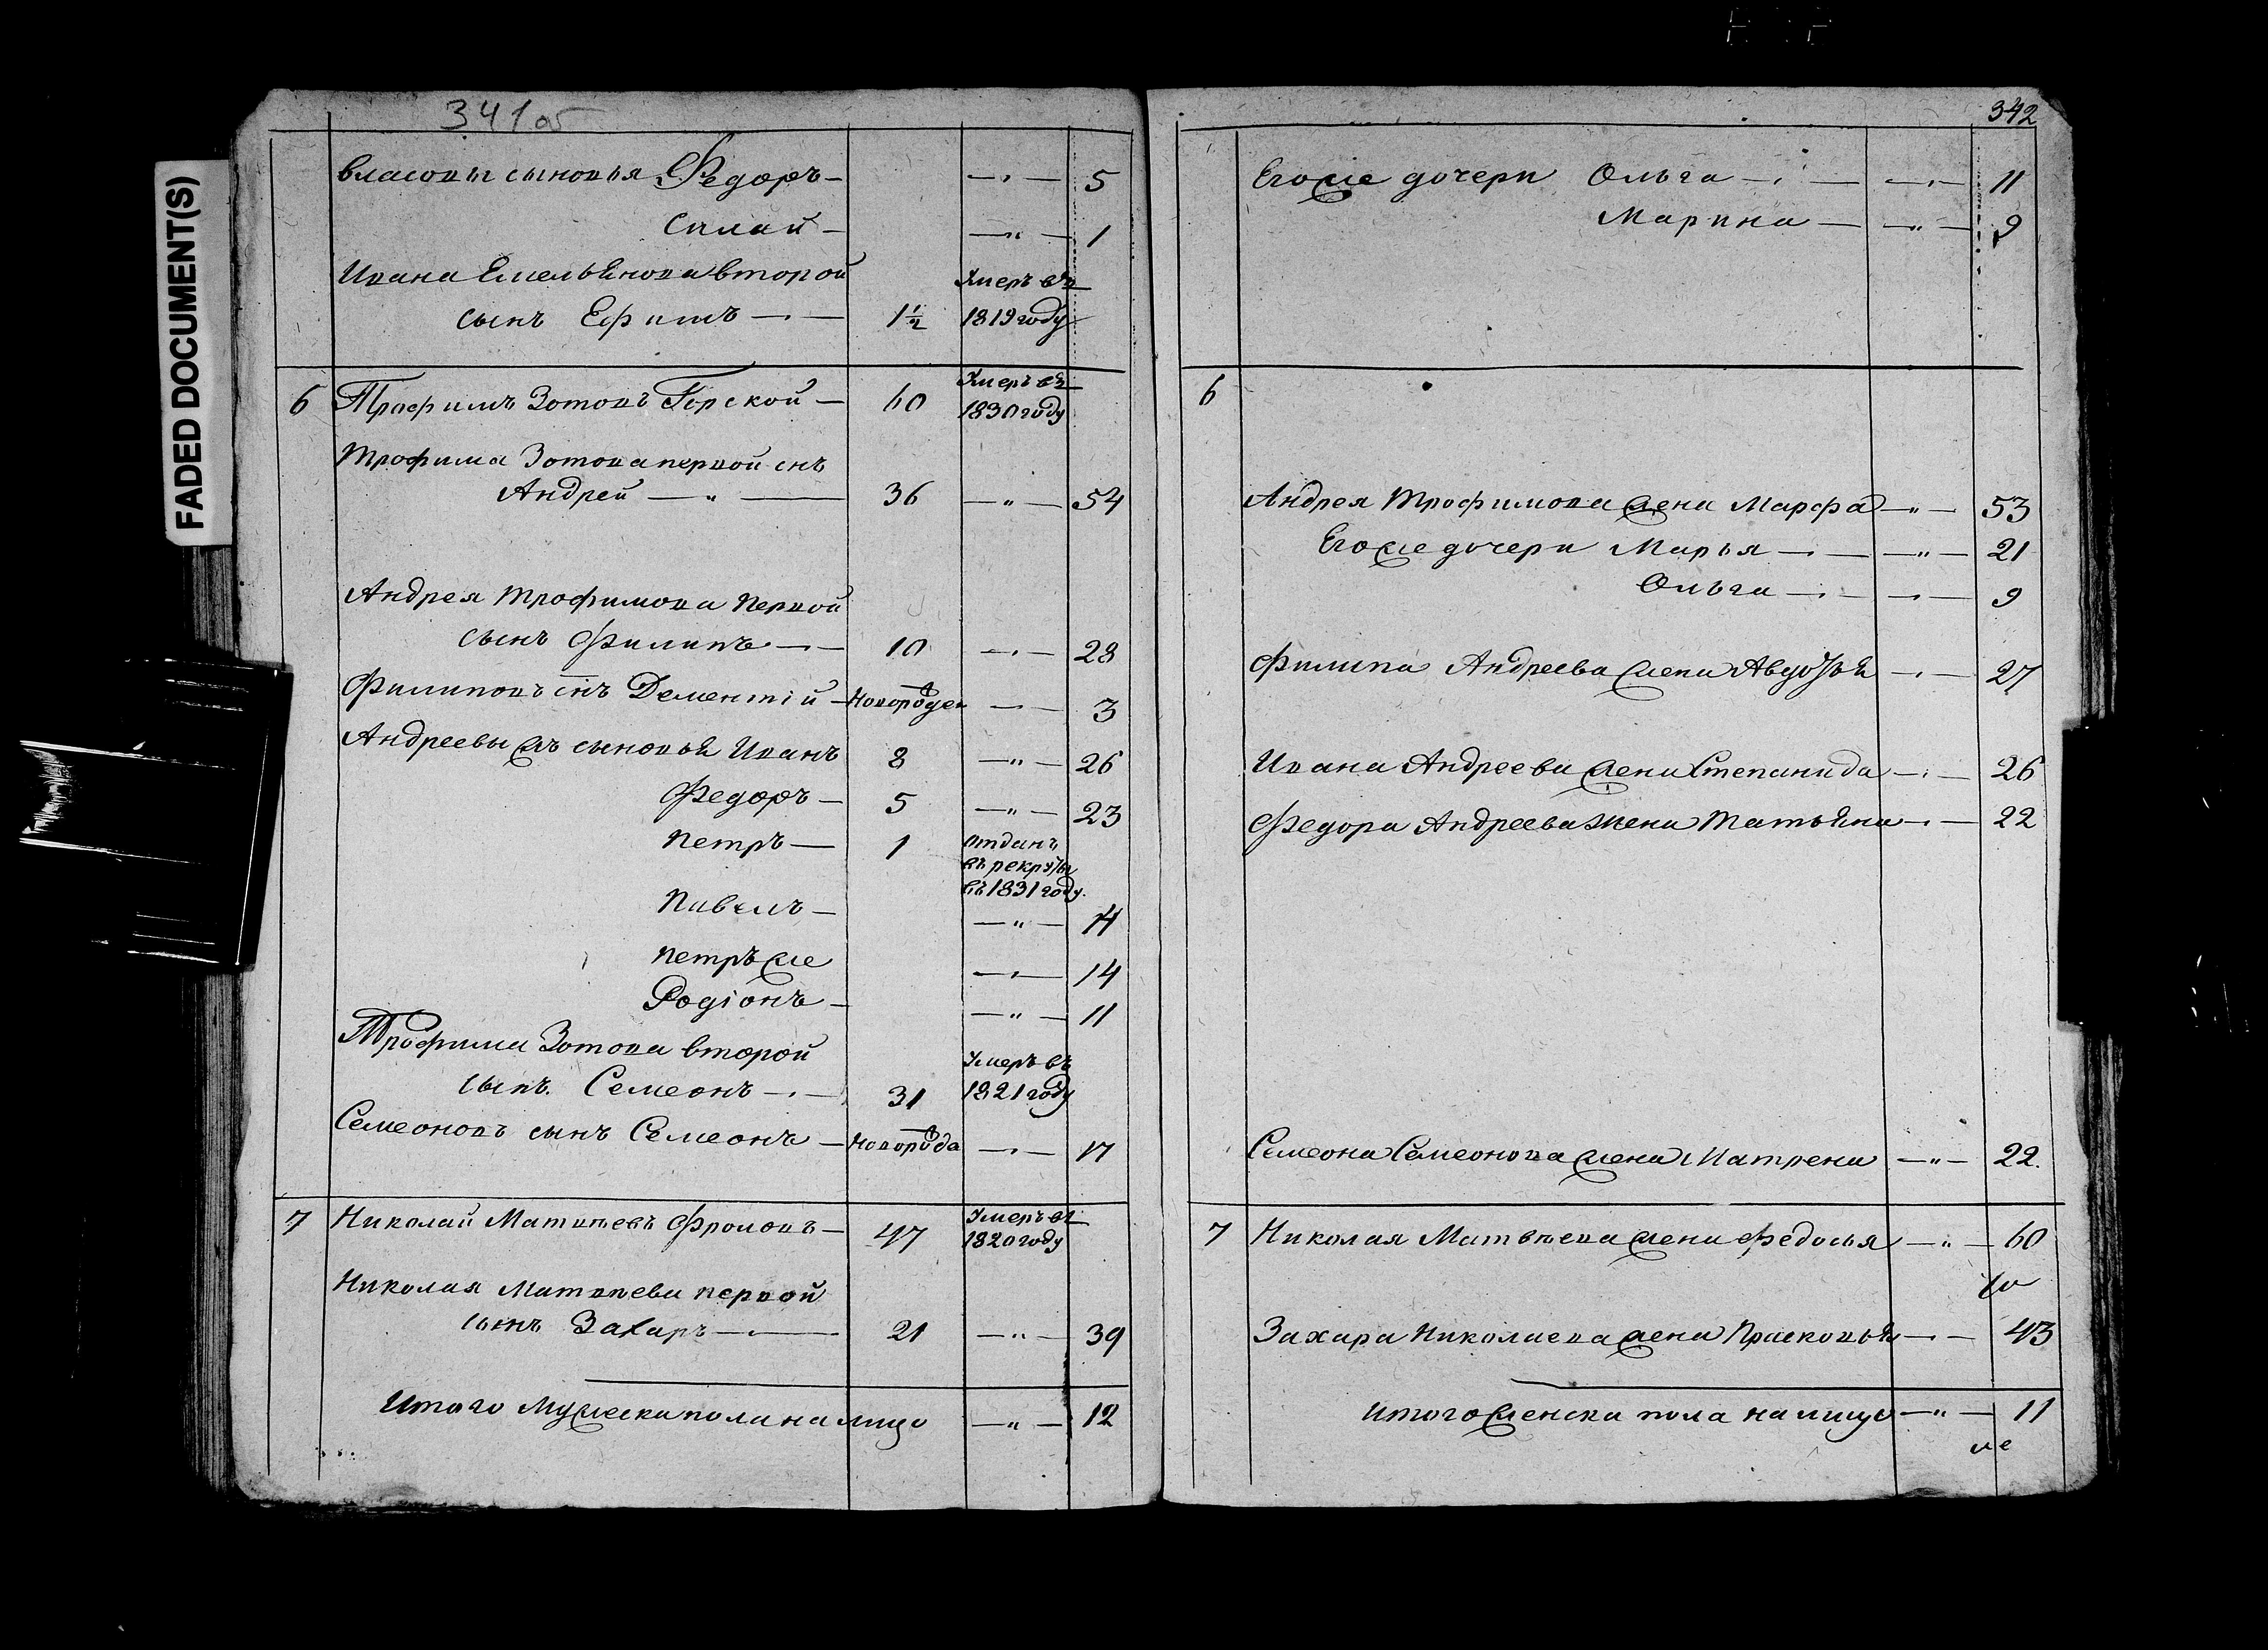 FADED DOCUMENT(S)
341 об
Власовы сыновья Федоръ — — „ — 5
Силай — — „ — 1
Ивана Емельянова второй
сынъ Ефимъ — 1 1/2 Умеръ въ 1819 году
6 Трофимъ Зотовъ Горской — 60 Умеръ въ 1830 году
Трофима Зотова первой снъ
Андрей — „ — 36 — „ — 54
Андрея Трофимова первой
сынъ Филипъ — 10 — „ — 28
Филиповъ снъ Дементій — Новорожден — „ — 3
Андреевы жъ сыновья Иванъ 8 — „ — 26
Федоръ — 5 — „ — 23
Петръ — 1 отданъ
въ рекруты
въ 1831 году.
Павелъ — — „ — 14
Петръ же — „ — 14
Родіонъ — — „ — 11
Трофима Зотова второй
сынъ Семеонъ — 31 Умеръ въ 1821 году
Семеоновъ сынъ Семеонъ — Новорожда — „ — 17
7 Николай Матвѣевъ Фроловъ — 47 Умеръ въ 1820 году
Николая Матвѣева первой
сынъ Захаръ — 21 — „ — 39
Итого мужеска пола на лицо — „ — 12
342
Его же дочери Ольга — „ — — „ — 11
Марина — — „ — 9
6
Андрея Трофимова жена Марфа — „ — 53
Его же дочери Марья — „ — — „ — 21
Ольга — „ — — „ — 9
Филипа Андреева жена Авдотья — „ — 27
Ивана Андреева жена Степанида — „ — 26
Федора Андреева жена Татьяна — „ — 22
Семеона Семеонова жена Матрена — „ — 22.
7 Николая Матвѣева жена Федосья — „ — 60
Захара Николаева жена Прасковья — „ — 43
Итого женска пола на лицо — „ — 11